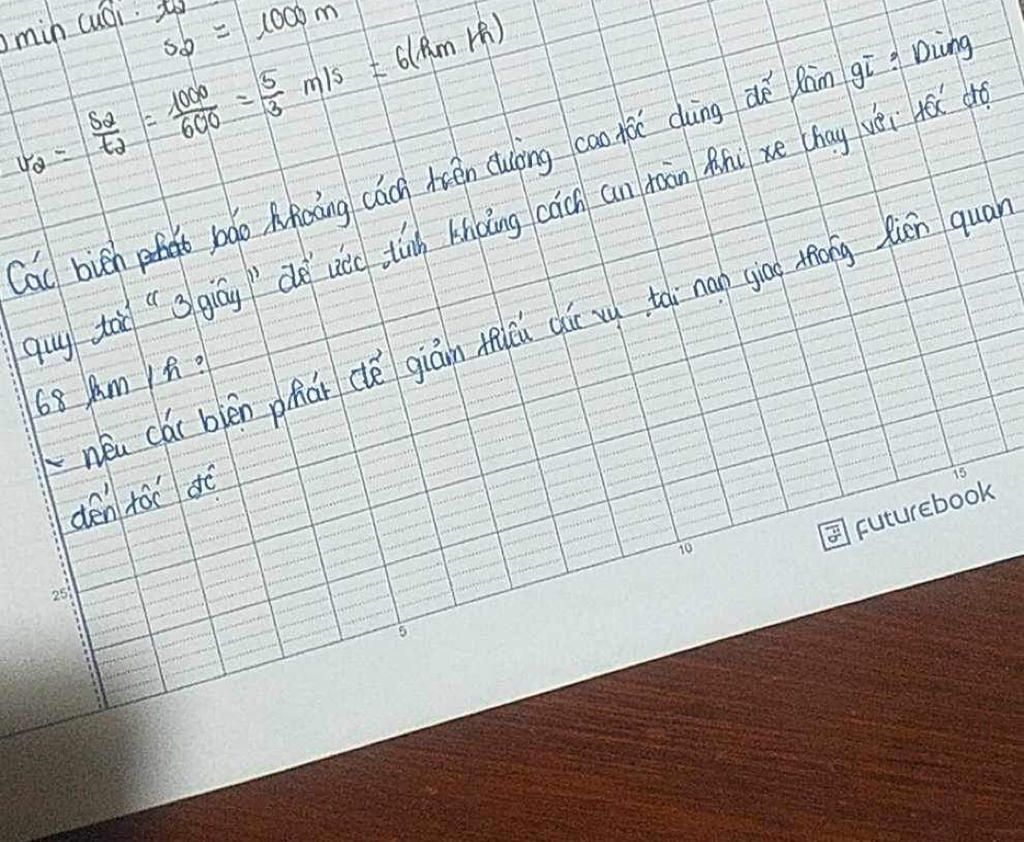 min cuối: t2
S2 = 1000 m
v2 = S2/t2 = 1000/600 = 5/3 m/s = 6(km/h)
Các biển báo khoảng cách trên đường cao tốc dùng để làm gì? Dùng
quy tắc "3 giây" để ước tính khoảng cách an toàn khi xe chạy với tốc độ
68 km/h?
- nêu các biện phát để giảm thiểu các vụ tai nạn giao thông liên quan
đến tốc độ
25
5
10
15
FUTUREBOOK